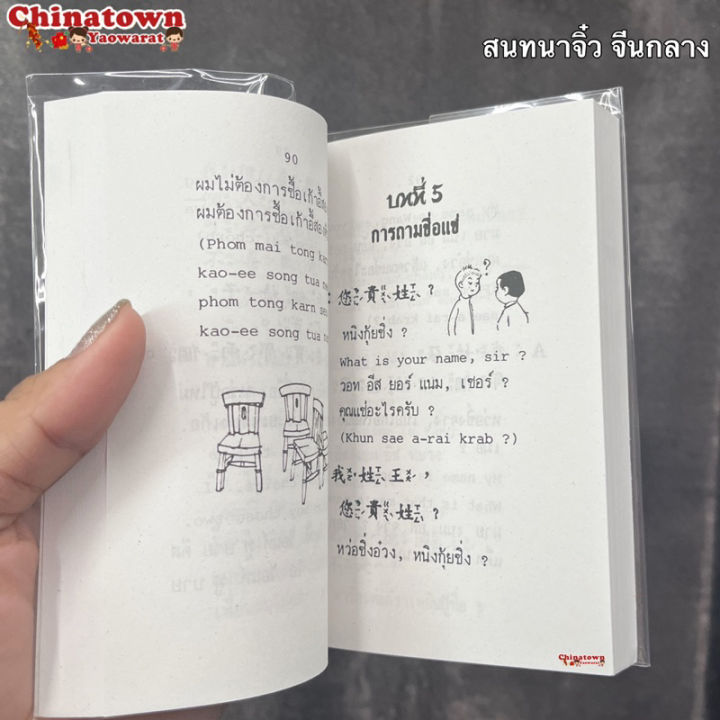 Chinatown
Yaowarat
สนทนาจิ๋ว จีนกลาง
90
ผมไม่ต้องการซื้อเก้าอี้
ผมต้องการซื้อเก้าอี้สอง
(Phom mai tong karn
kao-ee song tua
phom tong karn
kao-ee song tua
บทที่ 5
การถามชื่อแซ่
?
您貴姓 ?
หนิงกุ้ยซิ่ง ?
What is your name, sir ?
วอท อีส ยอร์ แนม, เซอร์ ?
คุณแซ่อะไรครับ ?
(Khun sae a-rai krab ?)
我姓王,
您貴姓 ?
หว่อซิ่งอ๋วง, หนิงกุ้ยซิ่ง ?
Chinatown
Yaowarat